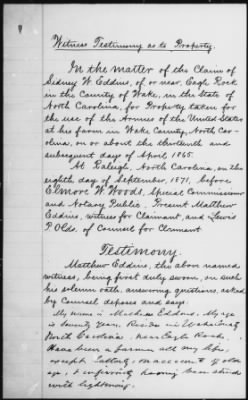 Witness Testimony as to Property.
In the matter of the Claim of
Sidney W. Eddins, of or near, Eagle Rock
in the County of Wake, in the State of
North Carolina, for Property taken for
the use of the Armies of the United States
at his farm in Wake County, North Car-
olina, on or about the thirteenth and
subsequent days of April 1865.
At Raleigh, North Carolina, on the
eighth day of September, 1871, before
Elmore W. Woods, Special Commissioner
and Notary Public. Present Matthew
Eddins, witness for Claimant, and Lewis
P. Olds, of Counsel for Claimant
Testimony.
Matthew Eddins, the above named
witness, being first duly sworn, on such
his solemn oath, answering, questions, asked
by Counsel deposes and says:
My name is Matthew Eddins. My age
is Seventy Years. Reside in Wake County
North Carolina, near Eagle Rock.
Have been a farmer all my life,
except on account of old
age, & infirmity having been struck
with lightening.